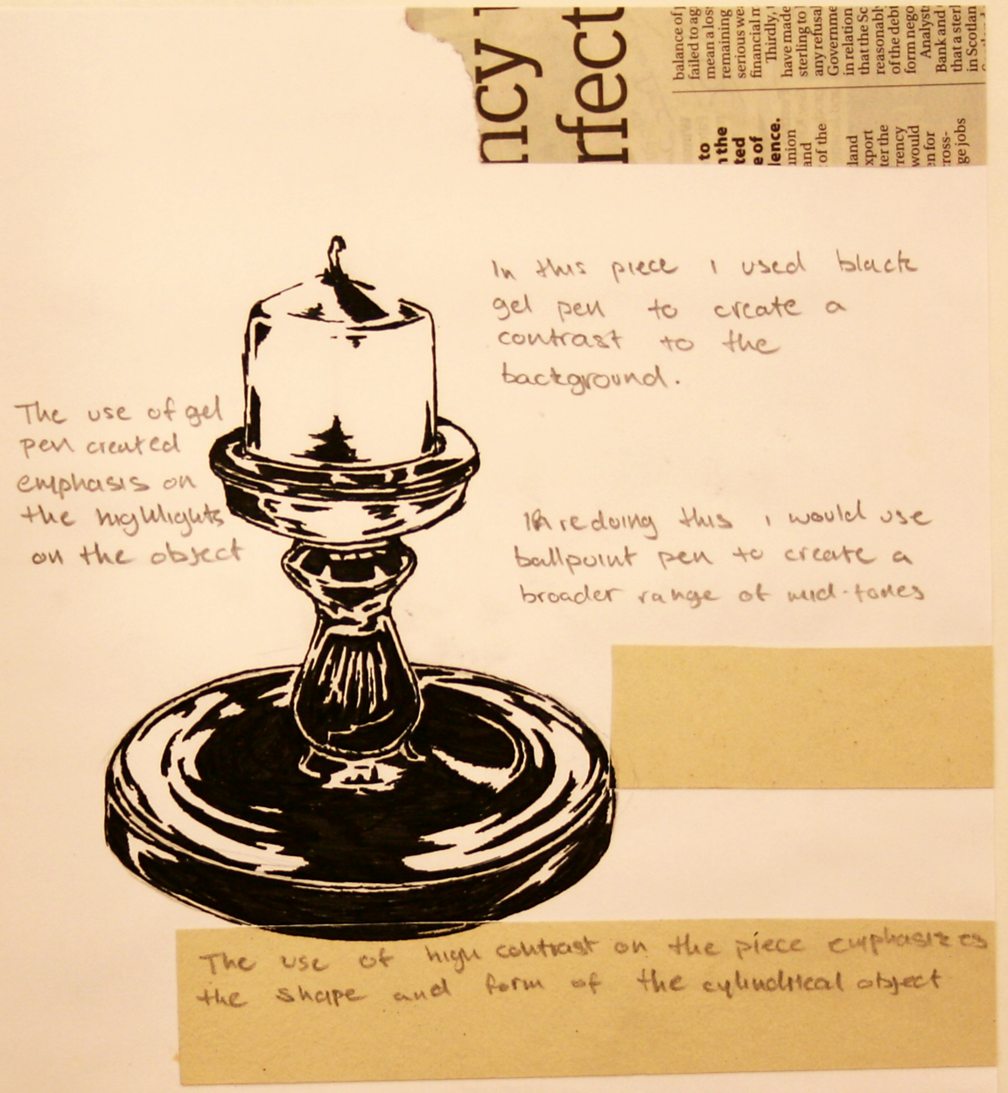 ncy
rfect
balance of
failed to ag
mean a los
remaining
serious we
financial m
Thirdly,
have made
sterling to
any refusal
Governme
in relation
that the Sc
reasonabl
of the deb
form nego
Analyst
Bank and
that a sterl
in Scotlan
to
n the
ted
e of
lence.
union
and
of the
land
xport
ter the
rrency
would
en for
ross-
ge jobs
In this piece I used black
gel pen to create a
contrast to the
background.
The use of gel
pen created
emphasis on
the highlights
on the object
In redoing this I would use
ballpoint pen to create a
broader range of mid-tones
The use of high contrast on the piece emphasizes
the shape and form of the cylindrical object